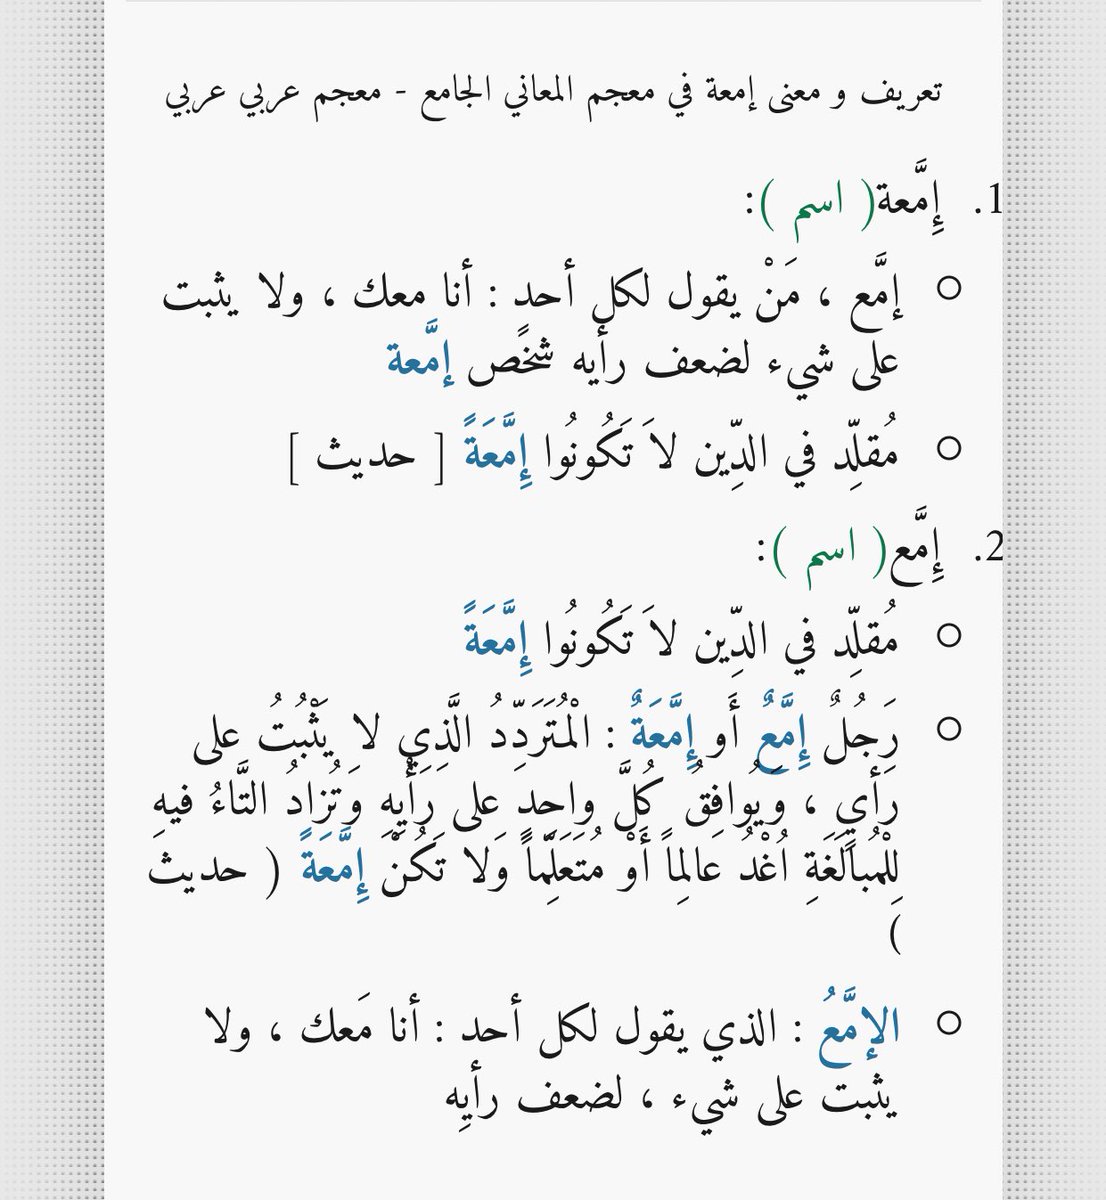 تعريف و معنى إمعة في معجم المعاني الجامع - معجم عربي عربي
1. إِمَّعة( اسم ):
إمَّع ، مَنْ يقول لكل أحد : أنا معك ، ولا يثبت
على شيء لضعف رأيه شخًص إمَّعة
مُقلِّد في الدِّين لاَ تَكُونُوا إِمَّعَةً [ حديث ]
2. إِمَّع( اسم ):
مُقلِّد في الدِّين لاَ تَكُونُوا إِمَّعَةً
رَجُلٌ إِمَّعٌ أَو إِمَّعَةٌ : الْمُتَرَدِّدُ الَّذِي لا يَثْبُتُ على
رَأيٍ ، وَيُوافِقُ كُلَّ واحِدٍ على رَأْيِهِ وَتُزادُ التَّاءُ فيهِ
لِلْمُبالَغَةِ اُغْدُ عالِماً أَوْ مُتَعَلِّماً وَلا تَكُنْ إِمَّعَةً ( حديث
)
الإمَّعُ : الذي يقول لكل أحد : أنا مَعك ، ولا
يثبت على شيء ، لضعف رأيِه